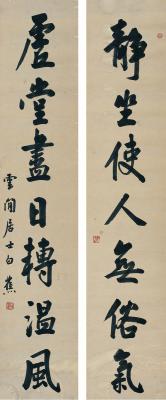 靜坐使人無俗氣
虛堂盡日轉溫風
雲間居士白蕉